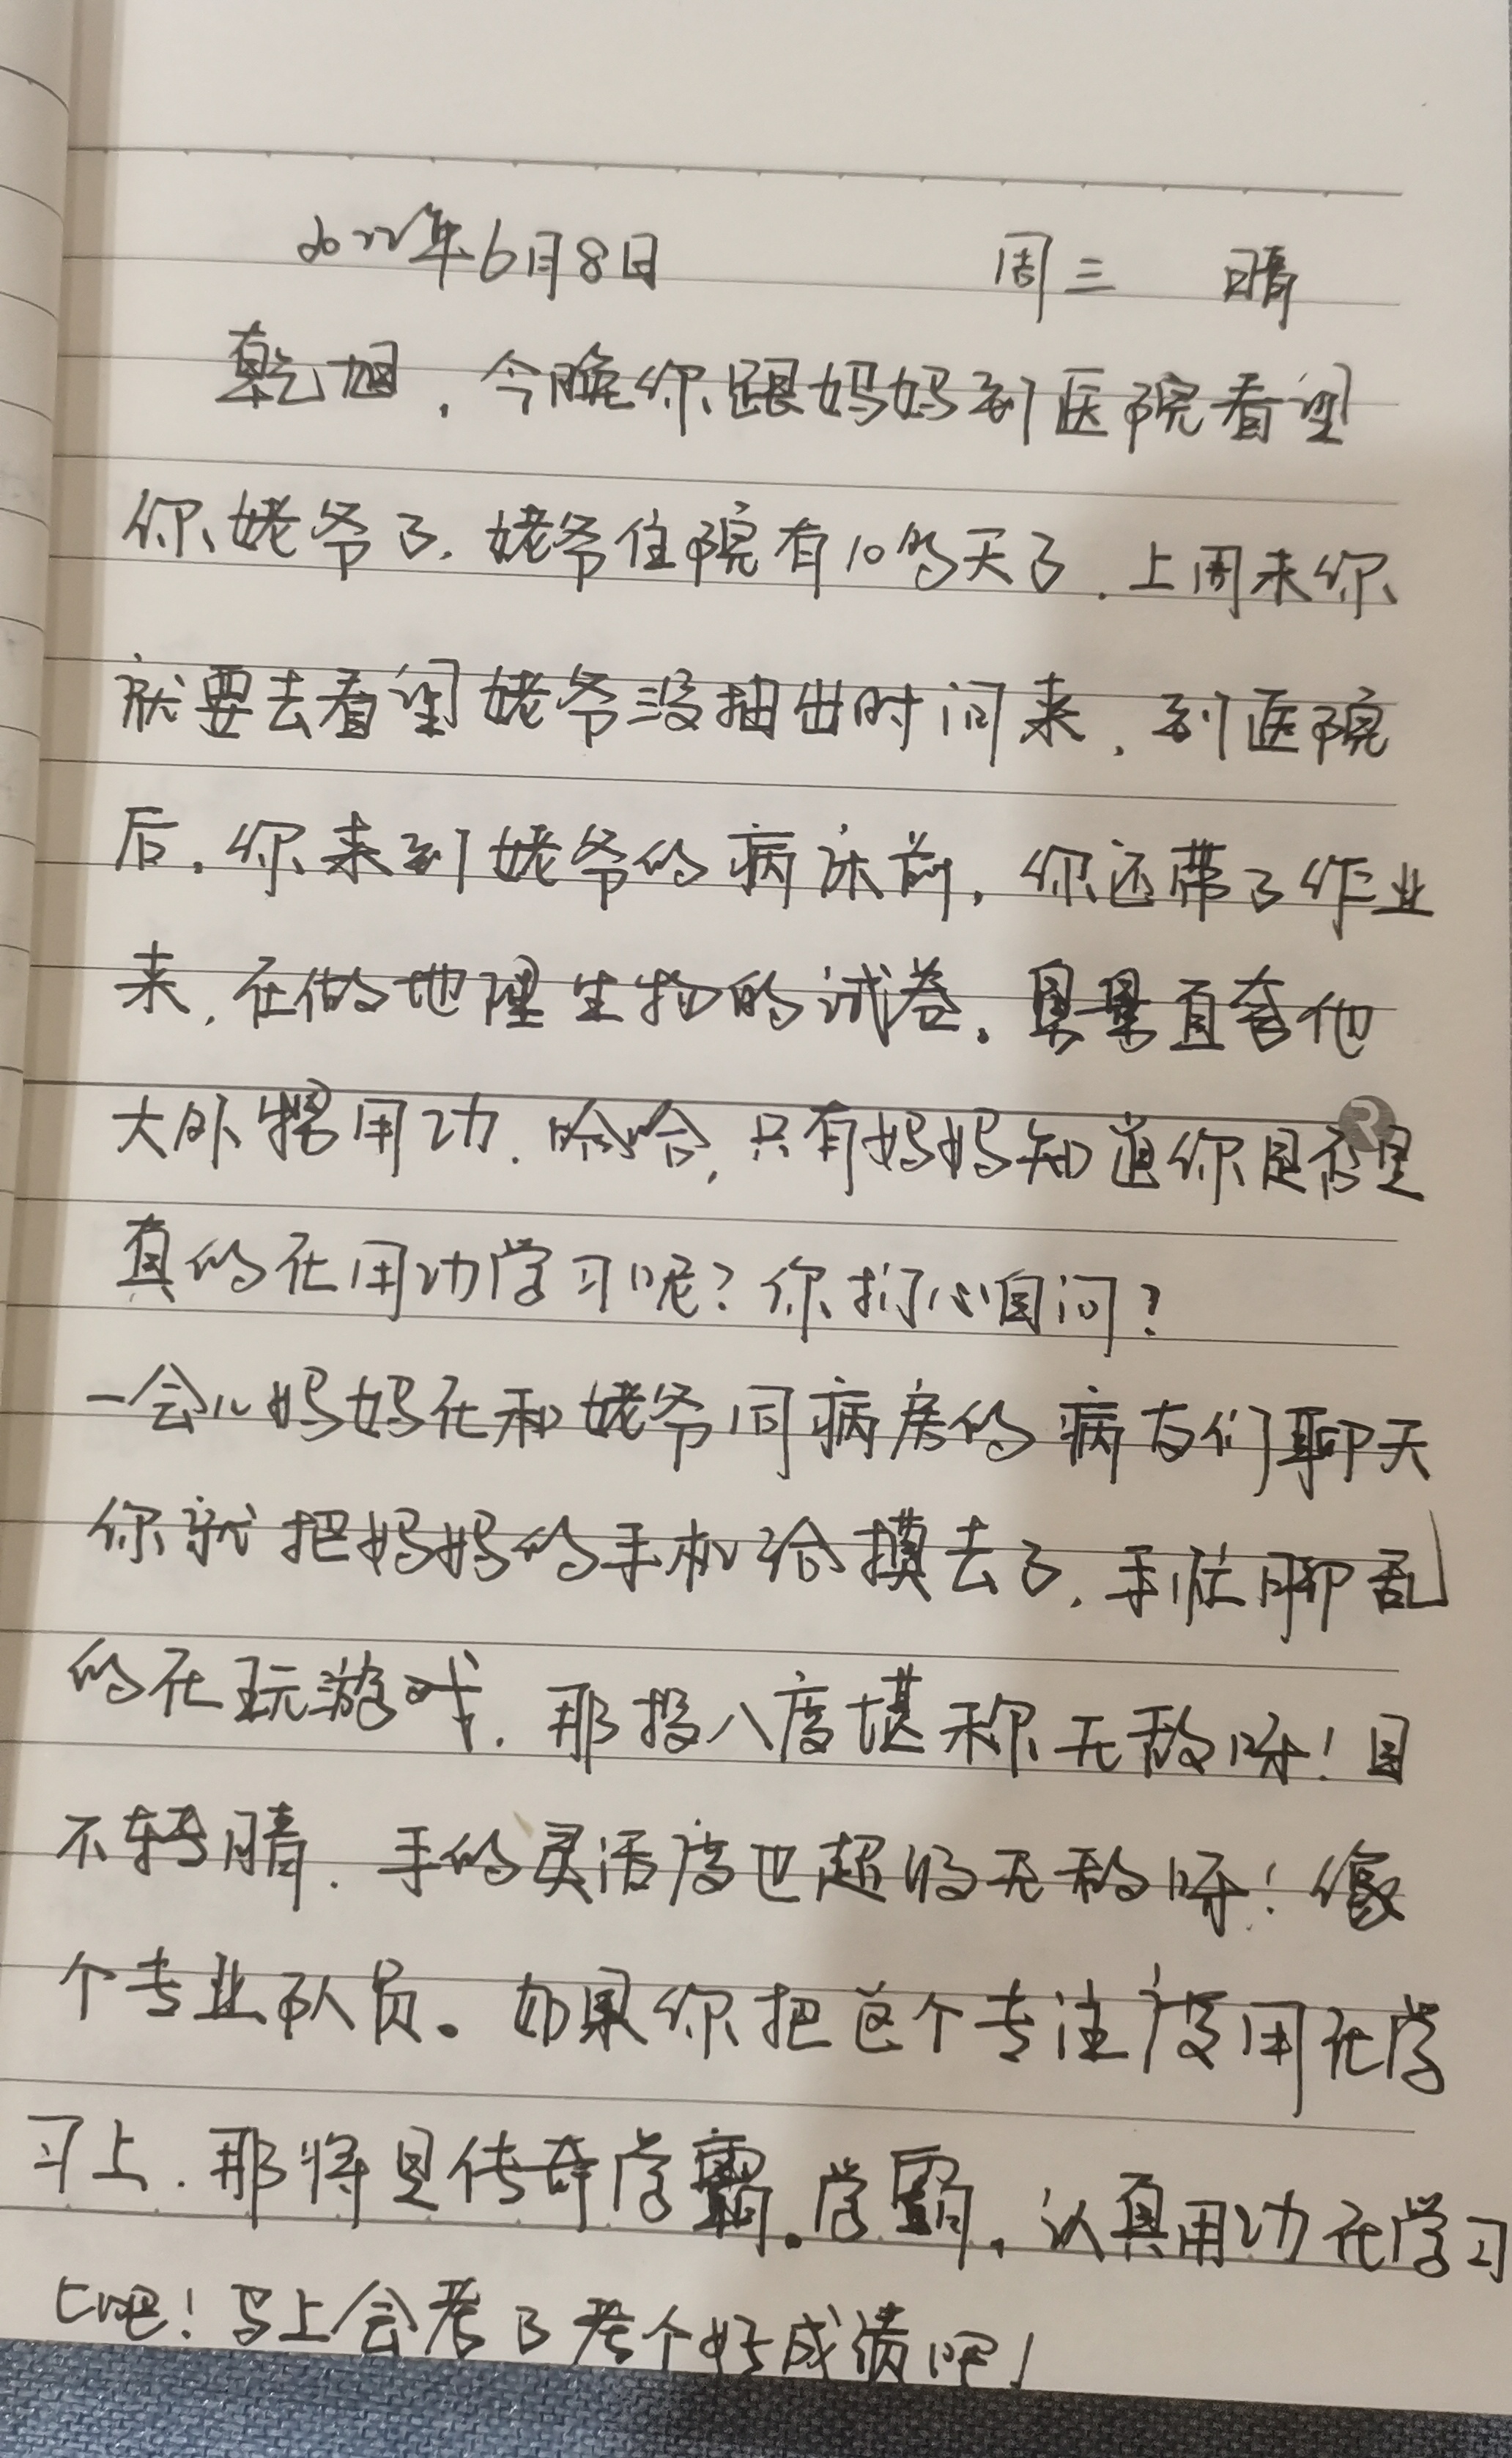 2022年6月8日 周三 晴
乾旭，今晚你跟妈妈到医院看望
你姥爷了，姥爷住院有10多天了，上周末你
就要去看望姥爷没抽出时间来，到医院
后，你来到姥爷的病床前，你还带了作业
来，在做地理生物的试卷。直夸他
大外甥用功，哈哈，只有妈妈知道你是否是
真的在用功学习呢？你扪心自问？
一会儿妈妈在和姥爷同病房的病友们聊天
你就把妈妈的手机给摸去了，手忙脚乱
的在玩游戏，那投入度堪称无敌呀！目
不转睛，手的灵活度也超级无敌呀！像
个专业队员。如果你把这个专注度用在学
习上，那将是传奇学霸。学霸，认真用功在学习
上吧！马上会考了考个好成绩吧！